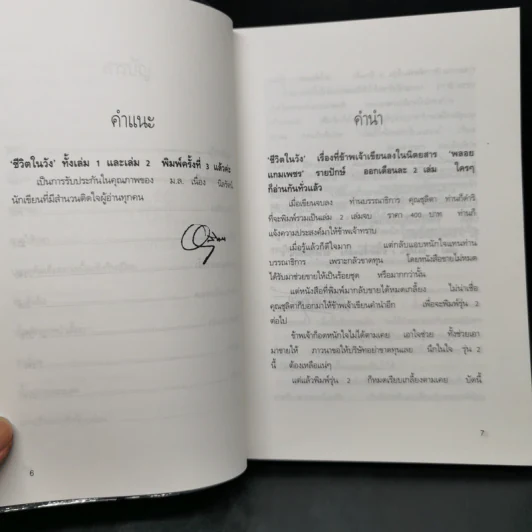 คำแนะ
'ชีวิตในวัง' ทั้งเล่ม 1 และเล่ม 2 พิมพ์ครั้งที่ 3 แล้วค่ะ
เป็นการรับประกันในคุณภาพของ ม.ล. เนื่อง นิลรัตน์
นักเขียนที่มีสำนวนติดใจผู้อ่านทุกคน
6
คำนำ
'ชีวิตในวัง' เรื่องที่ข้าพเจ้าเขียนลงในนิตยสาร 'พลอย
แกมเพชร' รายปักษ์ ออกเดือนละ 2 เล่ม ใครๆ
ก็อ่านกันทั่วแล้ว
เมื่อเขียนจบลง ท่านบรรณาธิการ คุณชุลิตา ท่านก็ดำริ
ที่จะพิมพ์รวมเป็นเล่ม 2 เล่มจบ ราคา 400 บาท ท่านก็
แจ้งความประสงค์มาให้ข้าพเจ้าทราบ
เมื่อรู้แล้วก็ดีใจมาก แต่กลับแอบหนักใจแทนท่าน
บรรณาธิการ เพราะกลัวขาดทุน โดยหนังสือขายไม่หมด
ได้รับมาช่วยขายให้เป็นร้อยชุด หรือมากกว่านั้น
แต่หนังสือที่พิมพ์มากลับขายได้หมดเกลี้ยง ไม่น่าเชื่อ
คุณชุลิตาก็บอกมาให้ข้าพเจ้าเขียนคำนำอีก เพื่อจะพิมพ์รุ่น 2
ต่อไป
ข้าพเจ้าก็อดหนักใจไม่ได้ตามเคย เอาใจช่วย ทั้งช่วยเอา
มาขายให้ ภาวนาขอให้บริษัทอย่าขาดทุนเลย นึกในใจ รุ่น 2
นี้ ต้องเหลือแน่ๆ
แต่แล้วพิมพ์รุ่น 2 ก็หมดเรียบเกลี้ยงตามเคย บัดนี้
7